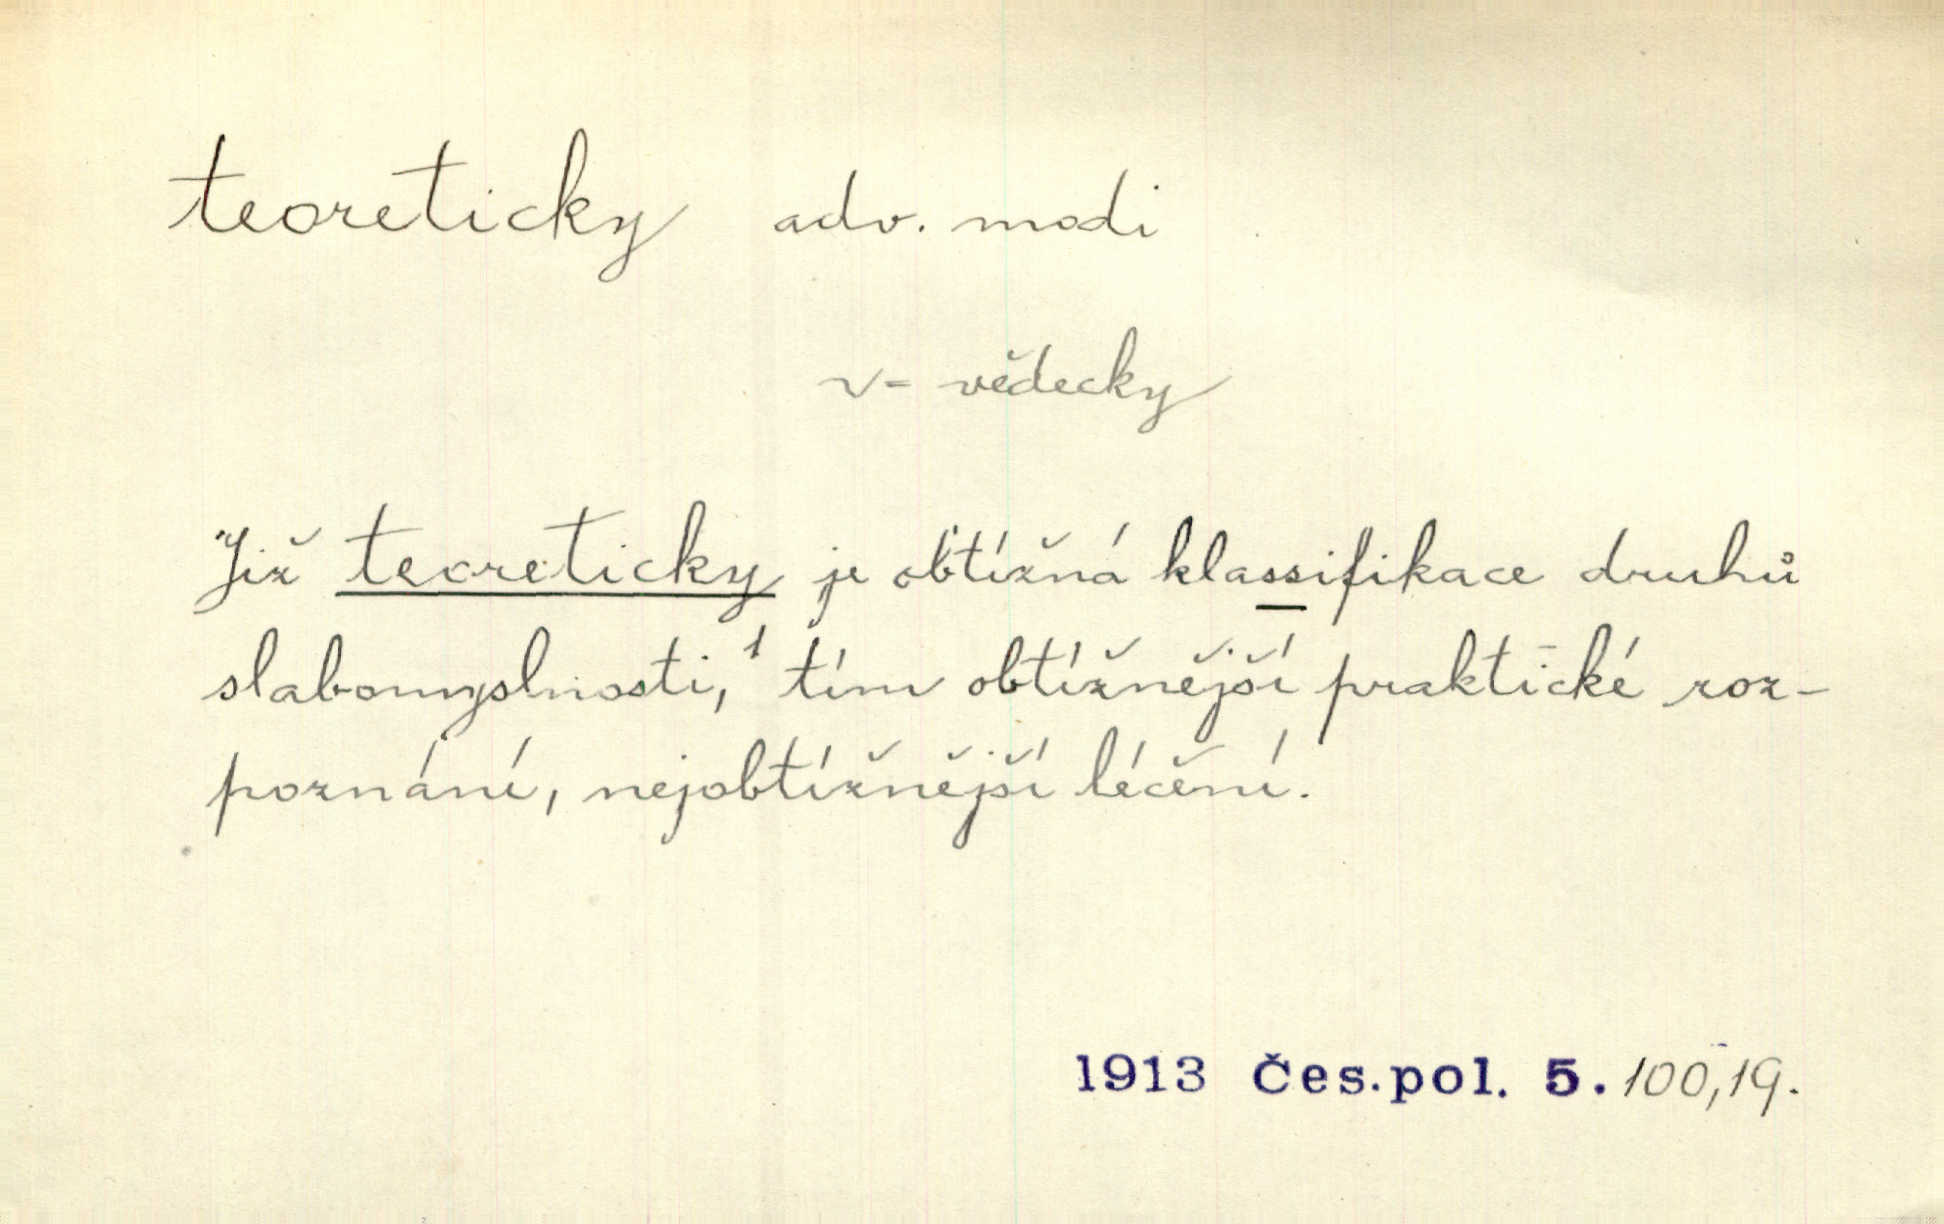 teoreticky adv. modi
v- vědecky
Již teoreticky je obtížná klassifikace druhů
slabomyslnosti,¹ tím obtížnější praktické roz-
poznání, nejobtížnější léčení.
1913 Čes.pol. 5. 100,19.